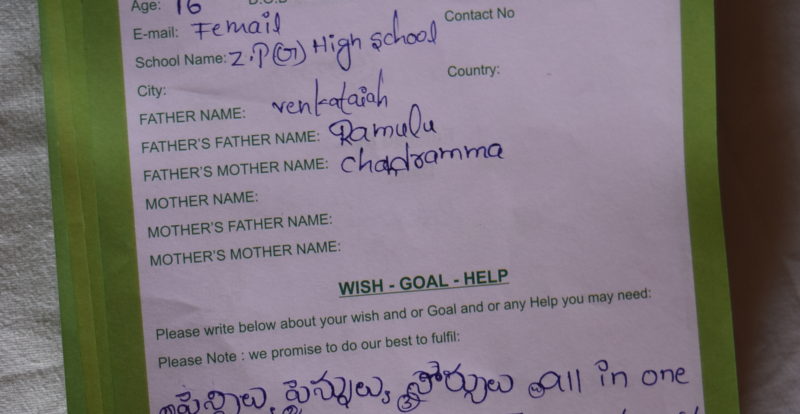 Age: 16
E-mail: Femail Contact No
School Name: Z.P(G) High school
City: Country:
FATHER NAME: venkataiah
FATHER'S FATHER NAME: Ramulu
FATHER'S MOTHER NAME: chandramma
MOTHER NAME:
MOTHER'S FATHER NAME:
MOTHER'S MOTHER NAME:
WISH - GOAL - HELP
Please write below about your wish and or Goal and or any Help you may need:
Please Note : we promise to do our best to fulfil:
పెన్సిలు, పెన్నులు, all in one